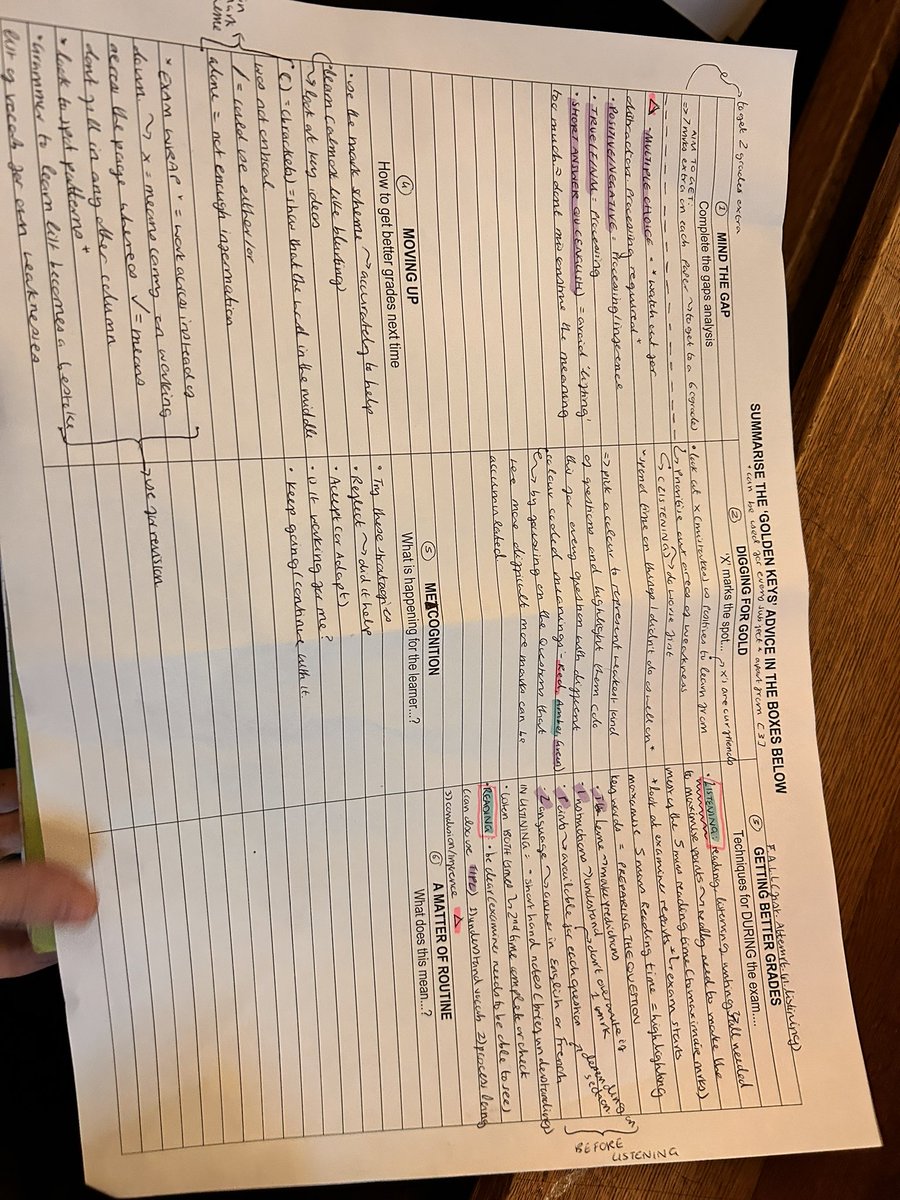 SUMMARISE THE 'GOLDEN KEYS' ADVICE IN THE BOXES BELOW
* can be used for every subject * apart from [3]
→ to get 2 grades extra
① MIND THE GAP
Complete the gaps analysis
AIM TO GET:
=> 7 mrks extra on each paper → to get to a 6 (grade)
MULTIPLE CHOICE = * watch out for
distractors. Processing required *
• POSITIVE/NEGATIVE = Processing/inference
• TRUE/F/NM = Processing
• SHORT ANSWER QU (ENGLISH) = avoid 'lifting'
too much → done misconstrue the meaning
② DIGGING FOR GOLD
'X' marks the spot...
'x' are our friends
• look at x (mistakes) vs positives to learn from
↳ Prioritise our areas of weakness
↳ (LISTENING) → do worse first
* spend time on things I didn't do as well on *
=> pick a colour to represent weakest kind
of questions and highlight them (do
this for every question with different
colour coded meanings - Red, Amber, Green)
↳ by focusing on the questions that
are more difficult more marks can be
accumulated.
③ GETTING BETTER GRADES
Techniques for DURING the exam....
• LISTENING: reading, listening, writing → all needed
to maximise points → really need to make the
most of the 5 mins reading time (to maximise mrks)
* look at examiner reports * ↳ exam starts
maximise 5 mins Reading time = highlighting
key words = PREPARING THE QUESTION
Theme → make predictions
Instructions → understand → don't over write if
1 mrk
Points → available for each question
Language → answer in English or French
depending on section
BEFORE LISTENING
IN LISTENING: = short hand notes (brief understandings)
• (when BOTH times) → 2nd time complete or check
• READING: • be clear (examiner needs to be able to see)
(can also use TIPL) 1) understand vocab 2) processing
3) conclusion/inference
④ MOVING UP
How to get better grades next time
• use the mark scheme → accurately to help
(learn (almost like blurting)
→ look at key ideas
( ) = (brackets) = show that the word in the middle
was not critical
/ = could use either/or
alone = not enough information
in mark scheme
* EXAM WRAP * = work across instead of
down → x = means carry on working
across the page whereas ✓ = means
don't fill in any other column
* look to spot patterns *
• Grammer to learn list becomes a bespoke
list of vocab for own weaknesses
→ use for revision
⑤ METACOGNITION
What is happening for the learner...?
• Try these strategies
• Reflect → did it help
• Accept (or Adapt)
• is it working for me?
• keep going / continue with it
⑥ A MATTER OF ROUTINE
What does this mean...?